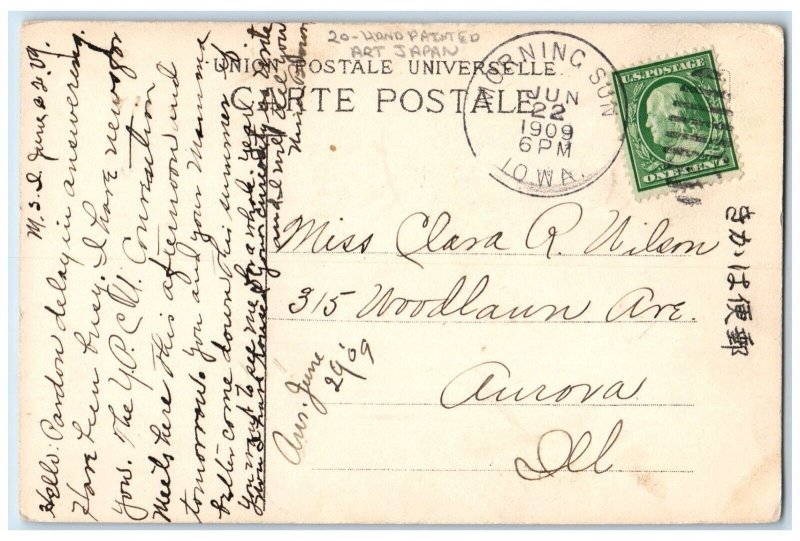 20-HAND PAINTED
ART JAPAN
UNION POSTALE UNIVERSELLE.
CARTE POSTALE.
MORNING SUN
JUN
22
1909
6 PM
IOWA.
U.S. POSTAGE
ONE CENT
きかは便郵
Miss Clara R. Wilson
315 Woodlawn Ave.
Aurora
Ill
Ans. June
29 '09
M. S. I. June 22. 09.
Hello: Pardon delay in answering.
Have been busy. I have news for
you. The Y.P.C.U. Convention
Meets here this afternoon and
tomorrow. You and your Mamma
better come down this summer
You want to see me for a whole year
your curiosity
write
and I will tell you